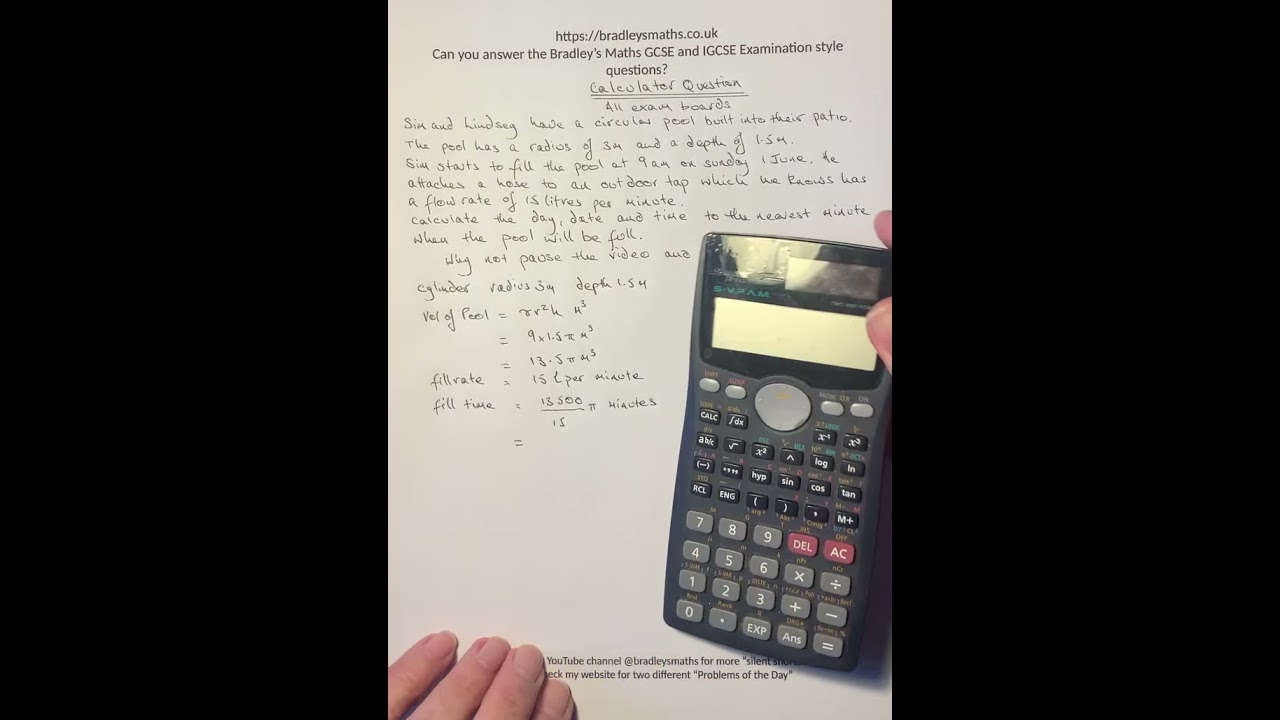 https://bradleysmaths.co.uk
Can you answer the Bradley's Maths GCSE and IGCSE Examination style
questions?
Calculator Question
All exam boards
Sim and Lindsey have a circular pool built into their patio.
The pool has a radius of 3m and a depth of 1.5m.
Sim starts to fill the pool at 9am on Sunday 1 June. He
attaches a hose to an outdoor tap which he knows has
a flow rate of 15 litres per minute.
Calculate the day, date and time to the nearest minute
when the pool will be full.
Why not pause the video and
cylinder radius 3m depth 1.5m
Vol of Pool = πr²h m³
= 9x1.5π m³
= 13.5π m³
fill rate = 15 l per minute
fill time = 13500/15 π minutes
=
S-V.P.A.M.
SHIFT ALPHA MODE CLR ON
CALC ∫dx x⁻¹ x³
ab/c √ x² ^ log ln
(−) °'" hyp sin cos tan
RCL ENG ( ) , M+
7 8 9 DEL AC
4 5 6 × ÷
1 2 3 + −
0 . EXP Ans =
YouTube channel @bradleysmaths for more "silent
eck my website for two different "Problems of the Day"